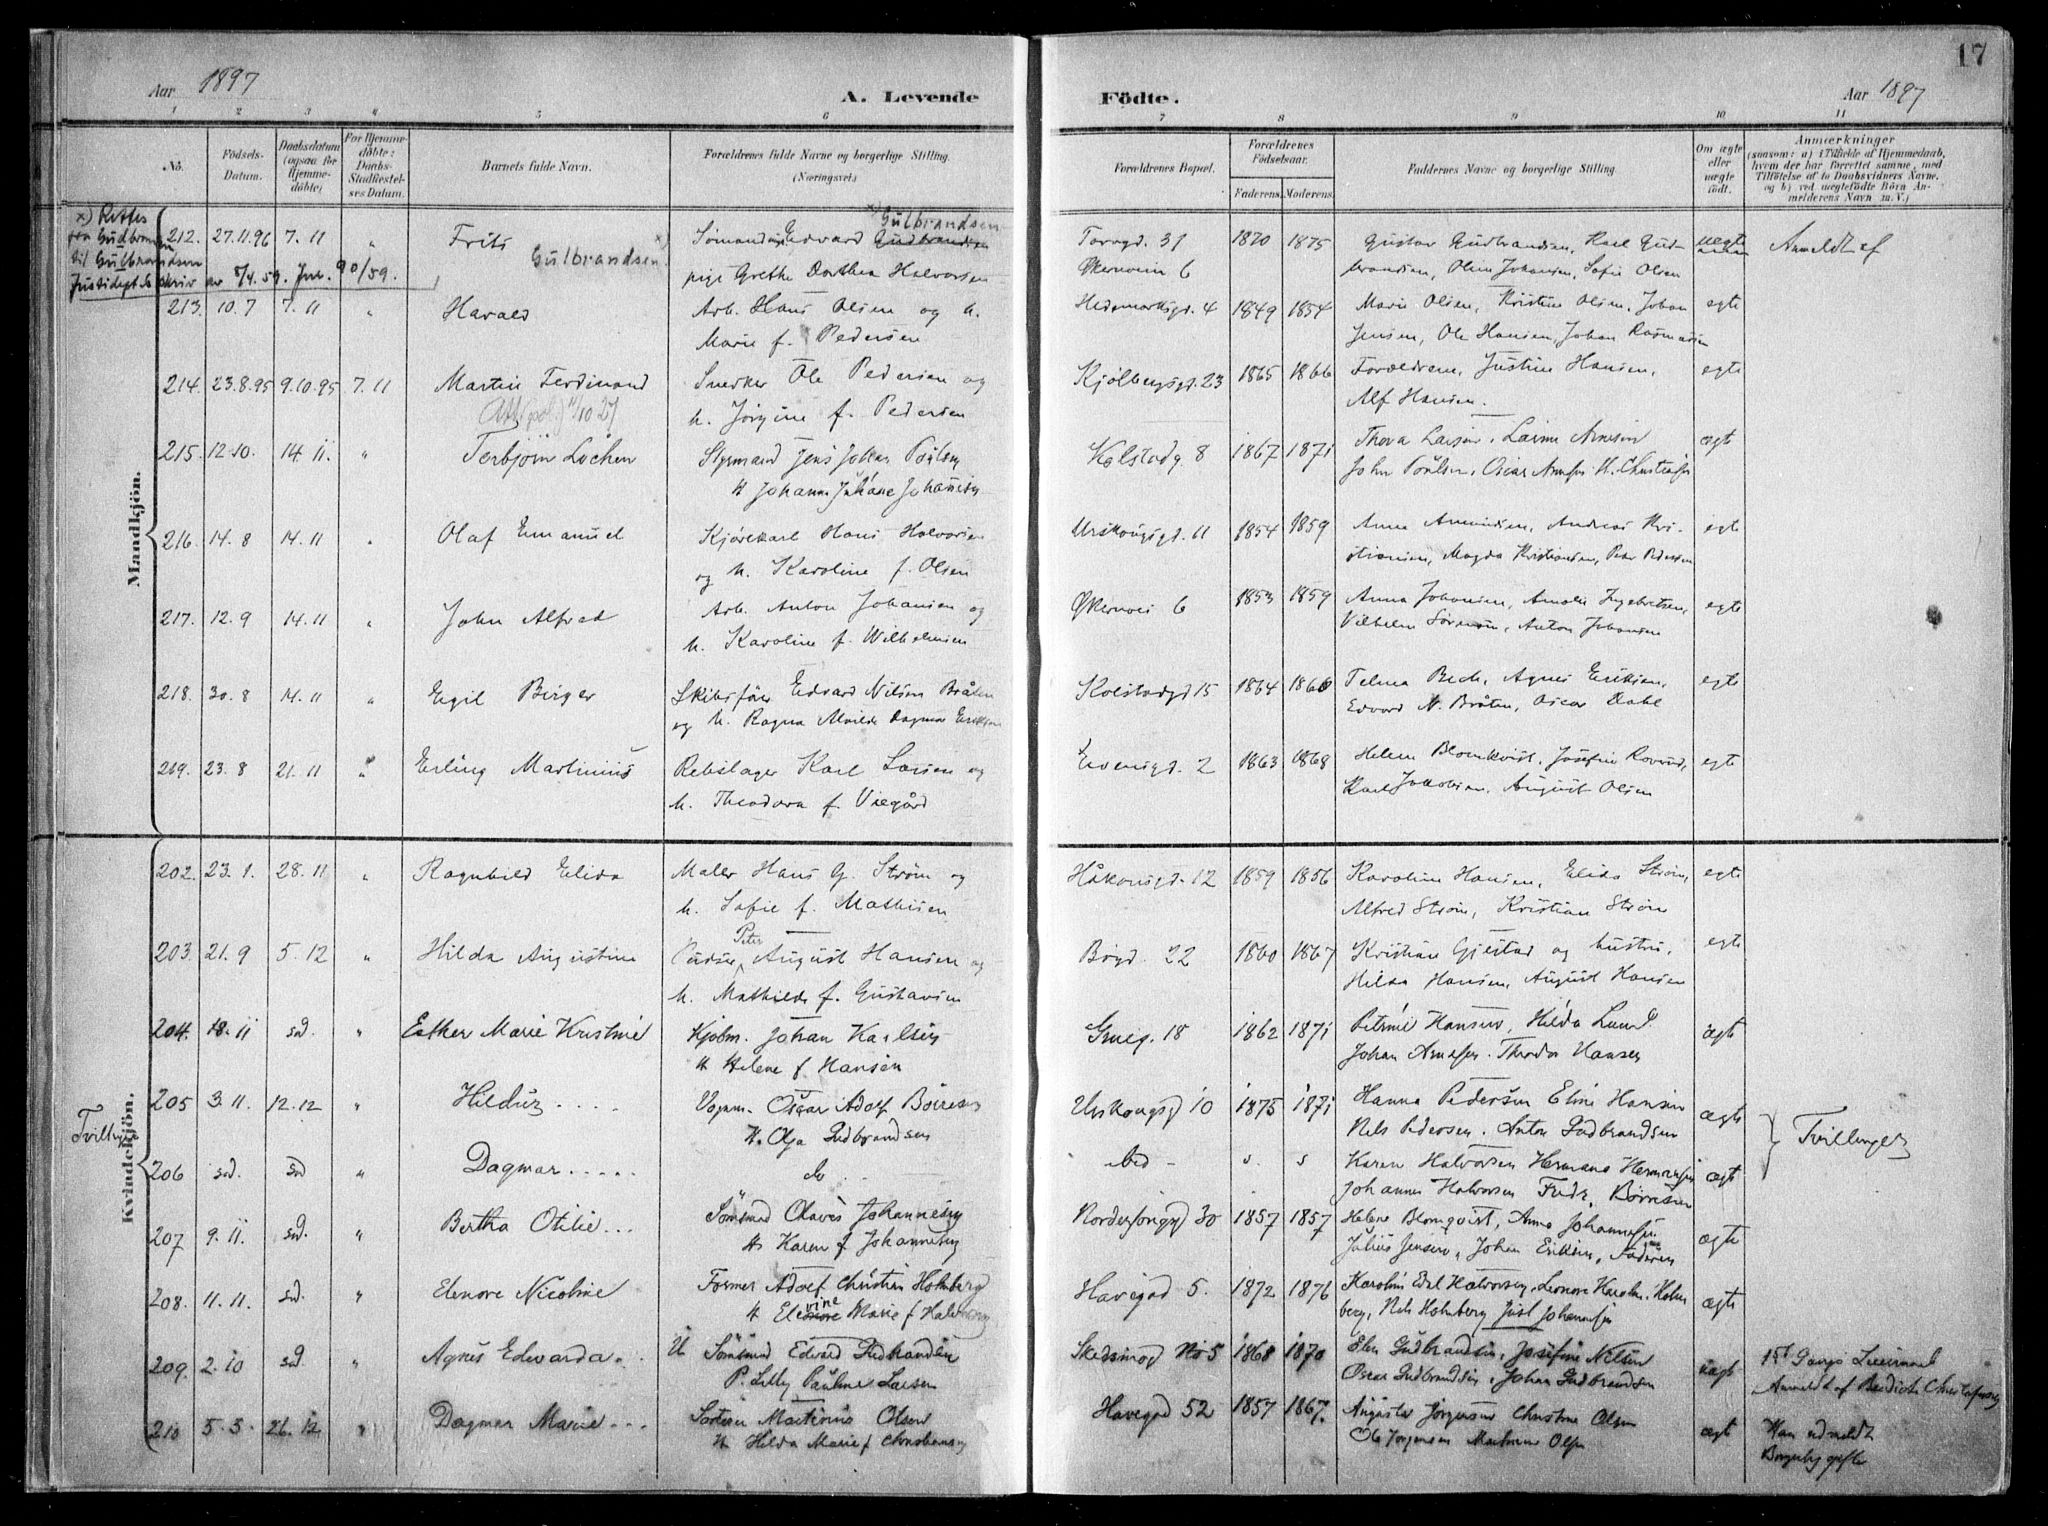 17
Aar 1897
A. Levende
Födte.
Aar 1897
1 2 3 4 5 6 7 8 9 10 11
No.
Födsels-Datum.
Daabsdatum (ogsaa for Hjemmedöbte)
For Hjemmedöbte: Daabs-Stadfæstelses Datum.
Barnets fulde Navn.
Forældrenes fulde Navne og borgerlige Stilling.
(Næringsvei.)
Forældrenes Bopæl.
Forældrenes Födselsaar.
Faderens. Moderens.
Faddernes Navne og borgerlige Stilling.
Om ægte eller uægte födt.
Anmærkninger
(saasom: a) i Tilfælde af Hjemmedaab, hvem der har forrettet samme, med Tilföielse af to Daabsvidners Navne. og b) ved uegtefödte Börn Anmelderens Navn m. V.)
Mandkjön.
x) Rettes
fra Gudbrandsen
til Gulbrandsen
8/4.59. Jnr. 90/59.
212. 27.11.96 7.11 " Frits Gulbrandsen x) Sømand Edvard Gudbrandsen x) Gulbrandsen
pige Grethe Dorthea Halvorsen
Torvgd. 31 1870 1875 Gustav Gudbrandsen, Karl Gud-
Økernvein 6 brandsen, Oline Johansen, Sofie Olsen
uegte Anmeldt af
213. 10.7 7.11 " Harald Arb. Hans Olsen og h.
Marie f. Pedersen
Hedemarksgd. 4 1849 1854 Marie Olsen, Kristine Olsen, Johan
Jensen, Ole Hansen, Johan Rasmussen
egte
214. 23.8.95 9.10.95 7.11 Martin Ferdinand Snedker Ole Pedersen og
Att. (pol.) 11/10 27 h. Jørgine f. Pedersen
Kjølbergsgd. 23 1865 1866 Forældrene, Justine Hansen,
Alf Hansen.
egte
215. 12.10. 14.11. " Torbjörn Lochen Styrmand Jens Johan Poulsen
H Johanne Juliane Johansen
Kolstadg. 8 1867 1871 Thora Larsen, Laura Arnesen
John Poulsen, Oscar Arnesen H. Christensen
ægt
216. 14.8 14.11 " Olaf Emanuel Kjørekarl Hans Halvorsen
og h. Karoline f. Olsen
Urskougsgd. 11 1854 1859 Anna Amundsen, Andreas Kri-
stiansen, Magda Kristiansen, Peter Pedersen
egte
217. 12.9 14.11 " John Alfred Arb. Anton Johansen og
h. Karoline f. Wilhelmsen
Økernvei 6 1853 1859 Anna Johansen, Amalie Ingebretsen,
Vilhelm Sörensen, Anton Johansen
egte
218. 30.8 14.11 " Egil Birger Skibsfører Edvard Nilsen Bråten
og h. Ragna Matilde Dagmar Eriksen
Kolstadgd 15 1864 1866 Telma Bech, Agnes Eriksen,
Edvard N. Bråten, Oscar Dahl
egte
219. 23.8 21.11 " Erling Martinius Rebslager Karl Larsen og
h. Theodora f. Viegård
Evensgd. 2 1863 1868 Helene Blomkvist, Josefine
Karl Jakobsen, August Olsen
egte
Kvindekjön.
202. 23.1. 28.11 " Ragnhild Elida Maler Hans G. Strøm og
h. Sofie f. Mathisen
Håkonsgd. 12 1859 1856 Karoline Hansen, Elida Strøm,
Alfred Strøm, Kristian Strøm
egte
203. 21.9 5.12 " Hilda Augustine Pudser Peter August Hansen og
h. Mathilde f. Gustavsen
Bøgd. 22 1860 1867 Kristian Gjestad og hustru,
Hilda Hansen, August Hansen
egte
204. 18.11 sd. " Esther Marie Kristine Kjøbm. Johan Karlsen
H Helene f Hansen
Grueg. 18 1862 1871 Petrine Hansen, Hilda Lund
Johan Arnesen. Theodor Hansen
ægte
Tvillinger
205 3.11. 12.12 " Hildur .... Vognm. Oscar Adolf Börresen
H. Olga Gudbrandsen
Urskougsgd 10 1875 1871 Hanna Pedersen Eline Hansen
Nils Pedersen. Anton Gudbrandsen
ægte Tvillinger
206 sd. sd " Dagmar ..... do ..
ibid - s. s Karen Halvorsen Hermana Hermansen
Johannes Halvorsen Fredr. Börresen
ægt
207 9.11. sd. " Bertha Otilie ... Sömand Olaves Johannesen
H Karen f Johannesen
Nordersongsgd 30 1857 1857 Helene Blomqvist, Anna Johannesen
Julius Jensen, Johan Eriksen, Faderen
ægte
208. 11.11. sd. " Elenore Nicoline Former Adolf Christian Holmberg
H Elenore vine Marie f Halvorsen
Havegad 5. 1872 1876 Karolin Edel Halvorsen, Leonore Karoline Holm
berg, Nils Holmberg Just Johannesen
ægte
209. 2.10 sd " Agnes Edvarda .. U Sömand Edvard Gudbrandsen
P. Lilly Pauline Larsen
Skedsmogd No 5 1868 1870 Elen Gudbrandsen, Josefine Nilsen
Oscar Gudbrandsen, Johan Gudbrandsen
uægt 1st Gangs Leiermaal
Anmeldt af
210 5.5. 26.12 " Dagmar Marie ... Martinius Olsen
H Hilda Marie f Christiansen
Havegad 52 1857 1867. Augusta Jörgensen Christine Olsen
Ole Jörgensen Martinius Olsen
ægt